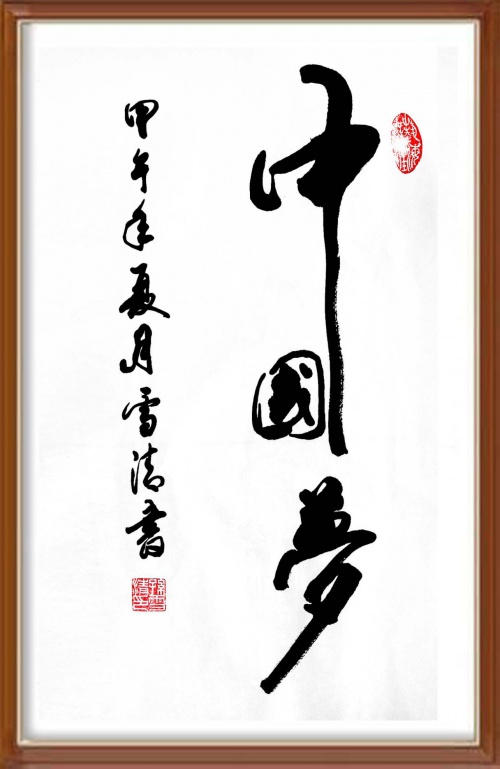 中國夢
甲午年夏月雪清書